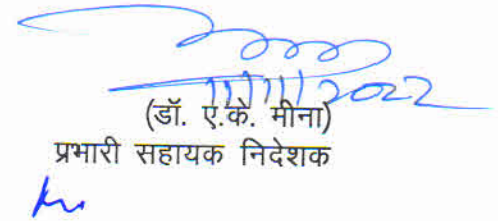 11/11/2022
(डॉ. ए.के. मीना)
प्रभारी सहायक निदेशक